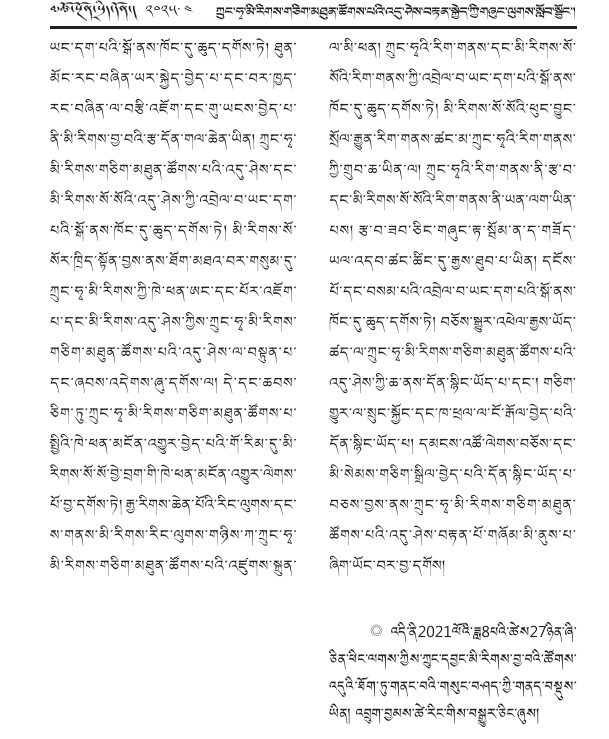 ༢༠༢༥.༤ ཀྲུང་ཧྭ་མི་རིགས་གཅིག་མཐུན་ཚོགས་པའི་འདུ་ཤེས་བརྟན་སྐྱེད་ཀྱི་གཞུང་ལུགས་སློབ་སྦྱོང་།
ཡང་དག་པའི་སྒོ་ནས་ཁོང་དུ་ཆུད་དགོས་ཏེ། ཐུན་
མོང་རང་བཞིན་ཡར་སྐྱེད་བྱེད་པ་དང་བར་ཁྱད་
རང་བཞིན་ལ་བརྩི་འཇོག་དང་གུ་ཡངས་བྱེད་པ་
ནི་མི་རིགས་བྱ་བའི་རྩ་དོན་གལ་ཆེན་ཡིན། ཀྲུང་ཧྭ་
མི་རིགས་གཅིག་མཐུན་ཚོགས་པའི་འདུ་ཤེས་དང་
མི་རིགས་སོ་སོའི་འདུ་ཤེས་ཀྱི་འབྲེལ་བ་ཡང་དག་
པའི་སྒོ་ནས་ཁོང་དུ་ཆུད་དགོས་ཏེ། མི་རིགས་སོ་
སོར་ཁྲིད་སྟོན་བྱས་ནས་ཐོག་མཐའ་བར་གསུམ་དུ་
ཀྲུང་ཧྭ་མི་རིགས་ཀྱི་ཁེ་ཕན་ཨང་དང་པོར་འཇོག་
པ་དང་མི་རིགས་འདུ་ཤེས་ཀྱིས་ཀྲུང་ཧྭ་མི་རིགས་
གཅིག་མཐུན་ཚོགས་པའི་འདུ་ཤེས་ལ་བསྟུན་པ་
དང་ཞབས་འདེགས་ཞུ་དགོས་ལ། དེ་དང་ཆབས་
ཅིག་ཏུ་ཀྲུང་ཧྭ་མི་རིགས་གཅིག་མཐུན་ཚོགས་པ་
སྤྱིའི་ཁེ་ཕན་མངོན་འགྱུར་བྱེད་པའི་གོ་རིམ་དུ་མི་
རིགས་སོ་སོ་བྱེ་བྲག་གི་ཁེ་ཕན་མངོན་འགྱུར་ལེགས་
པོ་བྱ་དགོས་ཏེ། རྒྱ་རིགས་ཆེན་པོའི་རིང་ལུགས་དང་
ས་གནས་མི་རིགས་རིང་ལུགས་གཉིས་ཀ་ཀྲུང་ཧྭ་
མི་རིགས་གཅིག་མཐུན་ཚོགས་པའི་འཛུགས་སྐྲུན་
ལ་མི་ཕན། ཀྲུང་ཧྭའི་རིག་གནས་དང་མི་རིགས་སོ་
སོའི་རིག་གནས་ཀྱི་འབྲེལ་བ་ཡང་དག་པའི་སྒོ་ནས་
ཁོང་དུ་ཆུད་དགོས་ཏེ། མི་རིགས་སོ་སོའི་ཕུང་བྱུང་
སྲོལ་རྒྱུན་རིག་གནས་ཚང་མ་ཀྲུང་ཧྭའི་རིག་གནས་
ཀྱི་གྲུབ་ཆ་ཡིན་ལ། ཀྲུང་ཧྭའི་རིག་གནས་ནི་རྩ་བ་
དང་མི་རིགས་སོ་སོའི་རིག་གནས་ནི་ཡན་ལག་ཡིན་
པས། རྩ་བ་ཟབ་ཅིང་གཞུང་རྟ་སྦོམ་ན་ད་གཟོད་
ཡལ་འདབ་ཚང་ཚིང་དུ་རྒྱས་ཐུབ་པ་ཡིན། དངོས་
པོ་དང་བསམ་པའི་འབྲེལ་བ་ཡང་དག་པའི་སྒོ་ནས་
ཁོང་དུ་ཆུད་དགོས་ཏེ། བཅོས་སྒྱུར་འཕེལ་རྒྱས་ཡོད་
ཚད་ལ་ཀྲུང་ཧྭ་མི་རིགས་གཅིག་མཐུན་ཚོགས་པའི་
འདུ་ཤེས་ཀྱི་ཆ་ནས་དོན་སྙིང་ཡོད་པ་དང་། གཅིག་
གྱུར་ལ་སྲུང་སྐྱོང་དང་ཁ་ཕྲལ་ལ་ངོ་རྒོལ་བྱེད་པའི་
དོན་སྙིང་ཡོད་པ། དམངས་འཚོ་ལེགས་བཅོས་དང་
མི་སེམས་གཅིག་སྒྲིལ་བྱེད་པའི་དོན་སྙིང་ཡོད་པ་
བཅས་བྱས་ནས་ཀྲུང་ཧྭ་མི་རིགས་གཅིག་མཐུན་
ཚོགས་པའི་འདུ་ཤེས་བརྟན་པོ་གཞོམ་མི་ནུས་པ་
ཞིག་ཡོང་བར་བྱ་དགོས།
འདི་ནི2021ལོའི་ཟླ8པའི་ཚེས27ཉིན་ཞི་
ཅིན་ཕིང་ལགས་ཀྱིས་ཀྲུང་དབྱང་མི་རིགས་བྱ་བའི་ཚོགས་
འདུའི་ཐོག་ཏུ་གནང་བའི་གསུང་བཤད་ཀྱི་གནད་བསྡུས་
ཡིན། འབྲུག་བྱམས་ཚེ་རིང་གིས་བསྒྱུར་ཅིང་ཞུས།